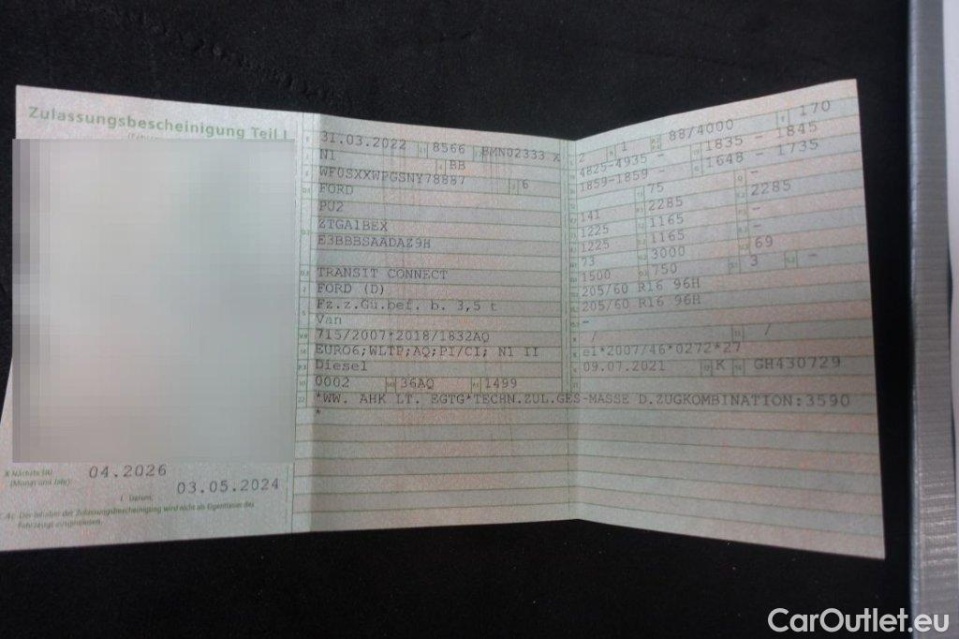 Zulassungsbescheinigung Teil I
04.2026
(Monat und Jahr)
03.05.2024
Der Inhaber der Zulassungsbescheinigung wird nicht als Eigentümer des
Fahrzeugs ausgewiesen.
31.03.2022 8566 BMN02333.X
N1 BB
WF0SXXWPGSNY78887 6
FORD
PU2
ZTGA1BEX
E3BBBSAADAZ9H
TRANSIT CONNECT
FORD (D)
Fz.z.Gü.bef. b. 3,5 t
Van
715/2007*2018/1832AQ
EURO6;WLTP;AQ;PI/CI; N1 II
Diesel
0002 36AQ 1499
*WW. AHK LT. EGTG*TECHN.ZUL.GES-MASSE D.ZUGKOMBINATION:3590
*
2 1 88/4000 170
4825-4935 - 1835 - 1845
1859-1859 - 1648 - 1735
75 -
141 2285 2285
1225 1165 -
1225 1165 -
73 3000 69
1500 750 3 -
205/60 R16 96H
205/60 R16 96H
-
/ /
e1*2007/46*0272*27
09.07.2021 K GH430729
CarOutlet.eu